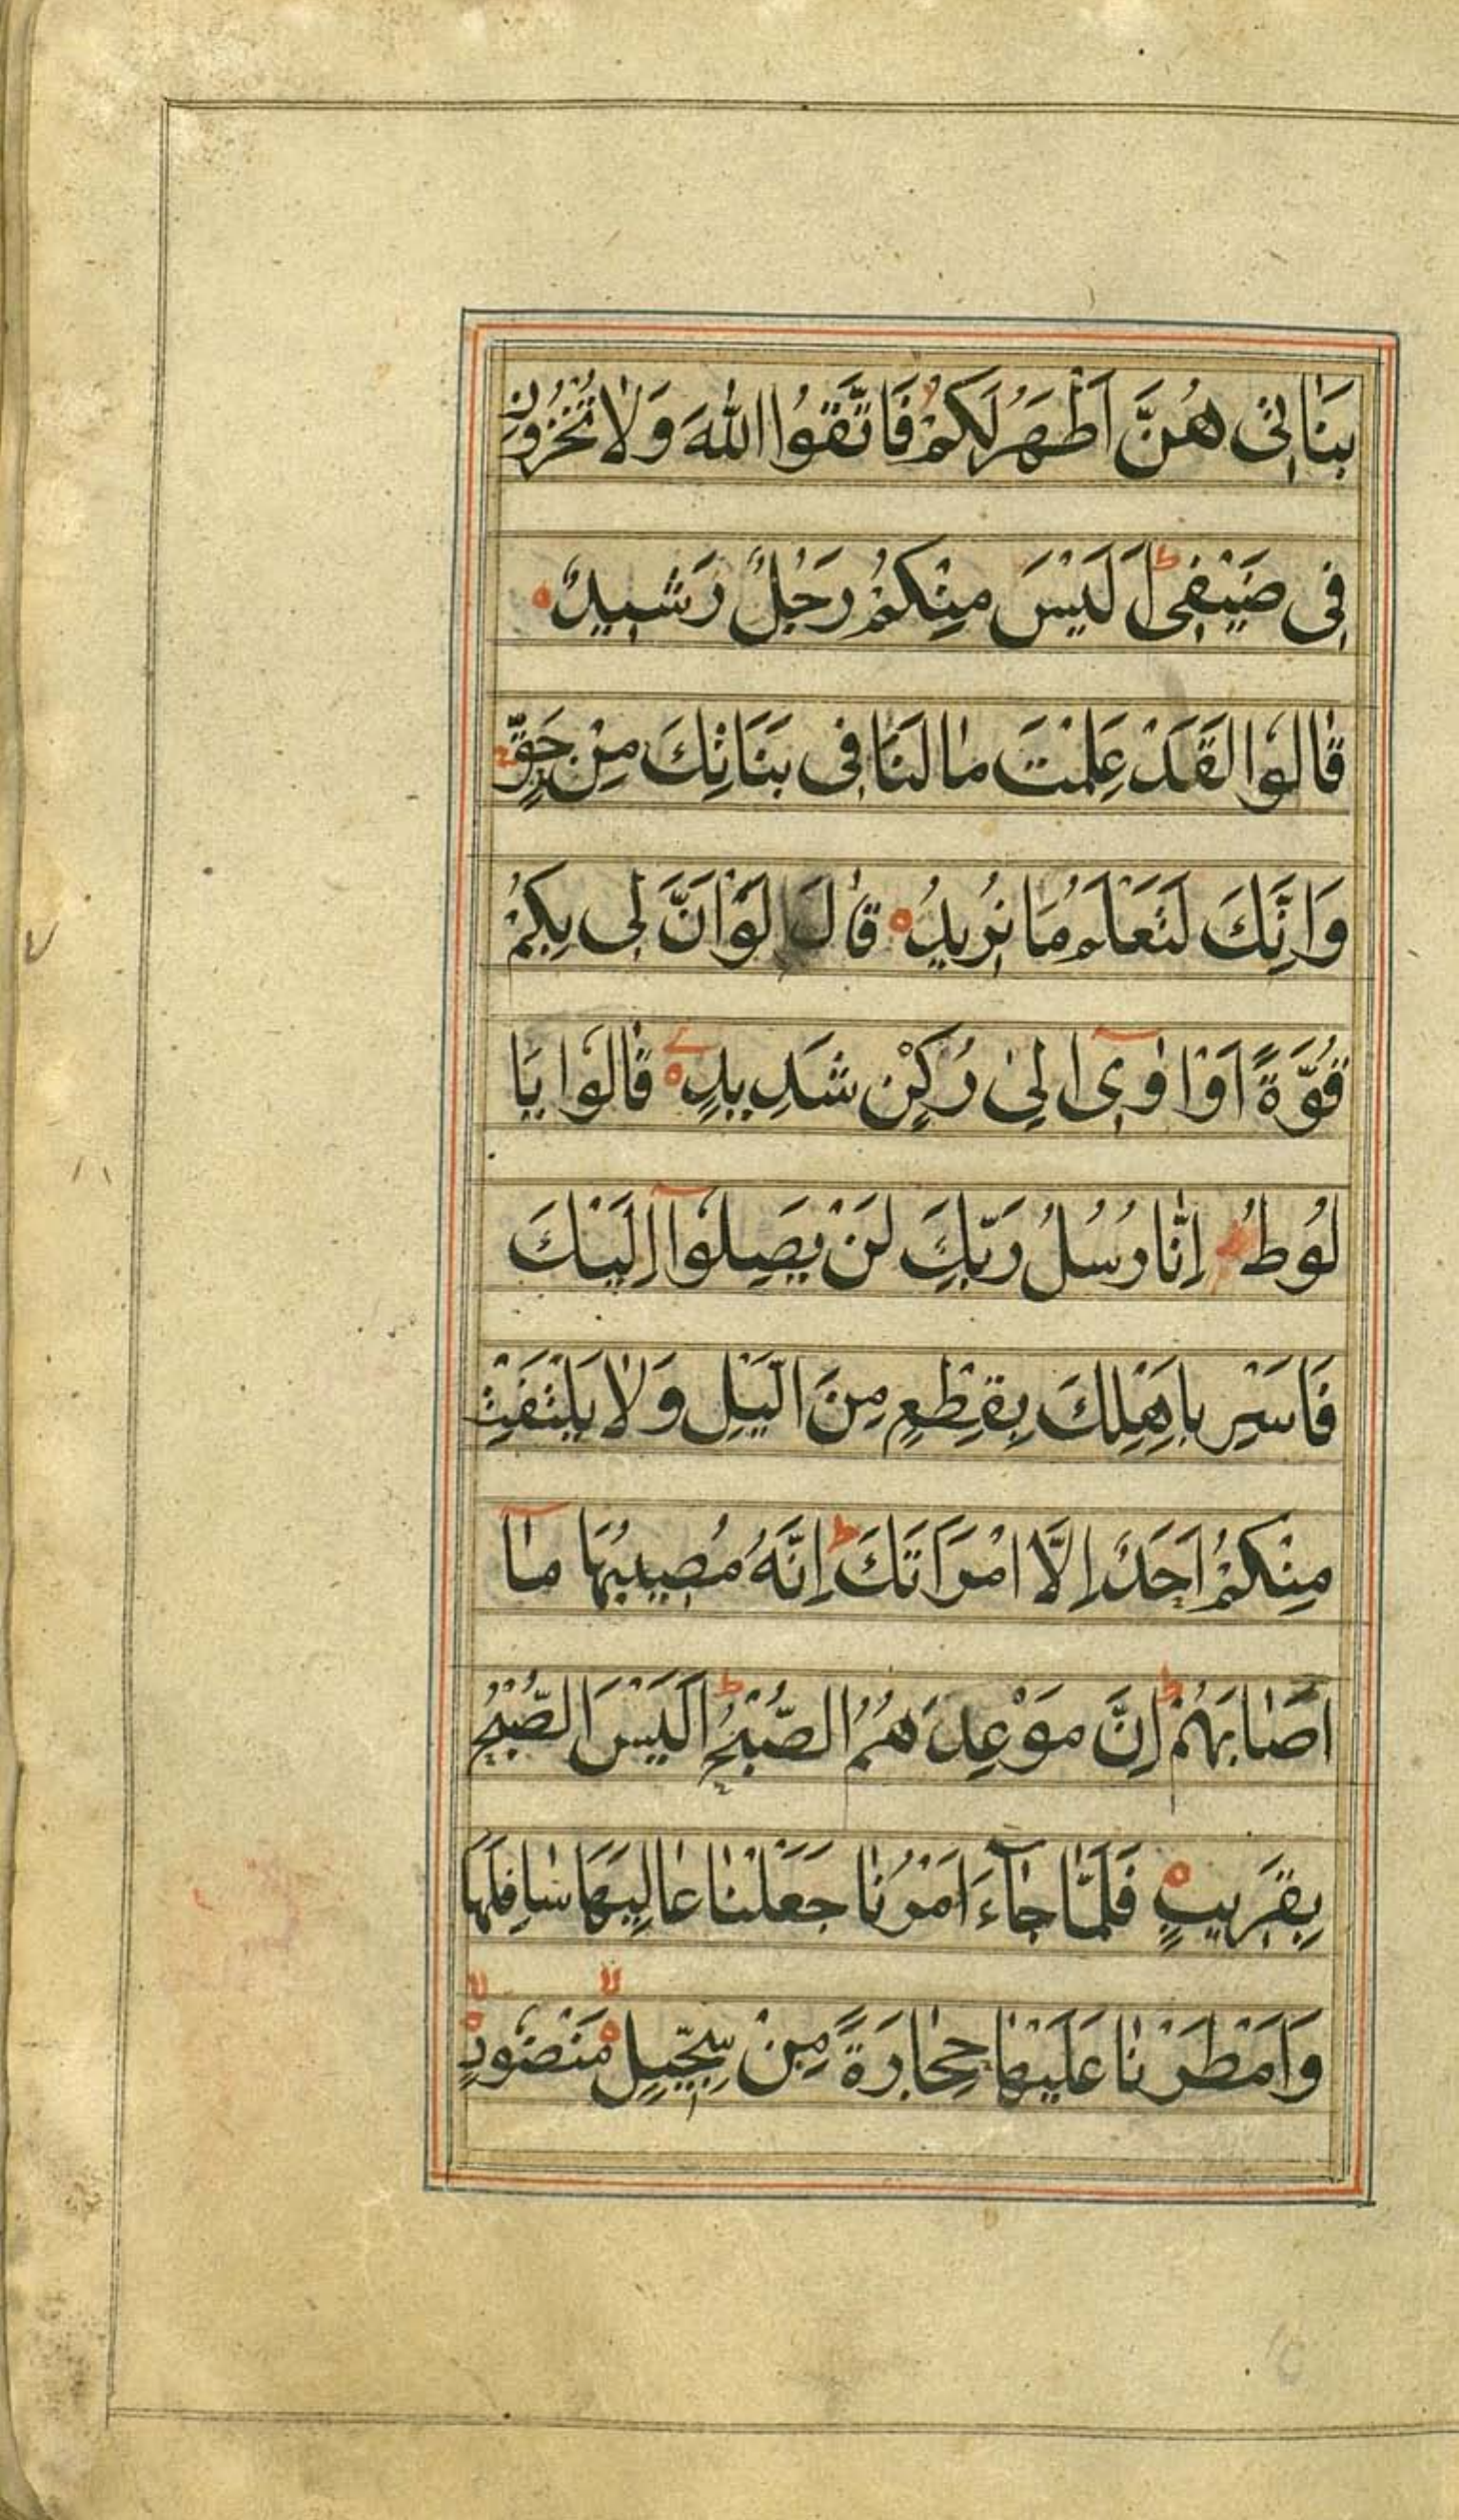 بَنَاتِی هُنَّ اَطْهَرُ لَكُمْ فَاتَّقُوا اللّٰهَ وَلَا تُخْزُونِ
فِی ضَیْفِی اَلَیْسَ مِنْكُمْ رَجُلٌ رَشِیدٌ
قَالُوا لَقَدْ عَلِمْتَ مَا لَنَا فِی بَنَاتِكَ مِنْ حَقٍّ
وَاِنَّكَ لَتَعْلَمُ مَا نُرِیدُ قَالَ لَوْ اَنَّ لِی بِكُمْ
قُوَّةً اَوْ اٰوِیٓ اِلٰی رُكْنٍ شَدِیدٍ قَالُوا یَا
لُوطُ اِنَّا رُسُلُ رَبِّكَ لَنْ یَصِلُوٓا اِلَیْكَ
فَاَسْرِ بِاَهْلِكَ بِقِطْعٍ مِنَ الَّیْلِ وَلَا یَلْتَفِتْ
مِنْكُمْ اَحَدٌ اِلَّا امْرَاَتَكَ اِنَّهُ مُصِیبُهَا مَآ
اَصَابَهُمْ اِنَّ مَوْعِدَهُمُ الصُّبْحُ اَلَیْسَ الصُّبْحُ
بِقَرِیبٍ فَلَمَّا جَآءَ اَمْرُنَا جَعَلْنَا عَالِیَهَا سَافِلَهَا
وَاَمْطَرْنَا عَلَیْهَا حِجَارَةً مِنْ سِجِّیلٍ مَنْضُودٍ